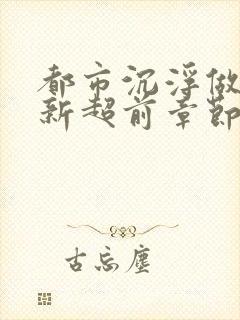 都市沉浮做
新超前章節
古忘塵